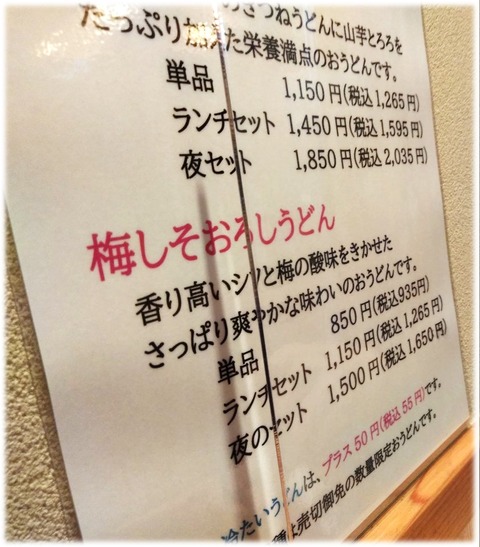 のきつねうどんに山芋とろろを
たっぷり加えた栄養満点のおうどんです。
単品 1,150円(税込1,265円)
ランチセット 1,450円(税込1,595円)
夜セット 1,850円(税込2,035円)
梅しそおろしうどん
香り高いシソと梅の酸味をきかせた
さっぱり爽やかな味わいのおうどんです。
単品 850円(税込935円)
ランチセット 1,150円(税込1,265円)
夜のセット 1,500円(税込1,650円)
冷たいうどんは、プラス50円(税込55円)です。
は売切御免の数量限定おうどんです。